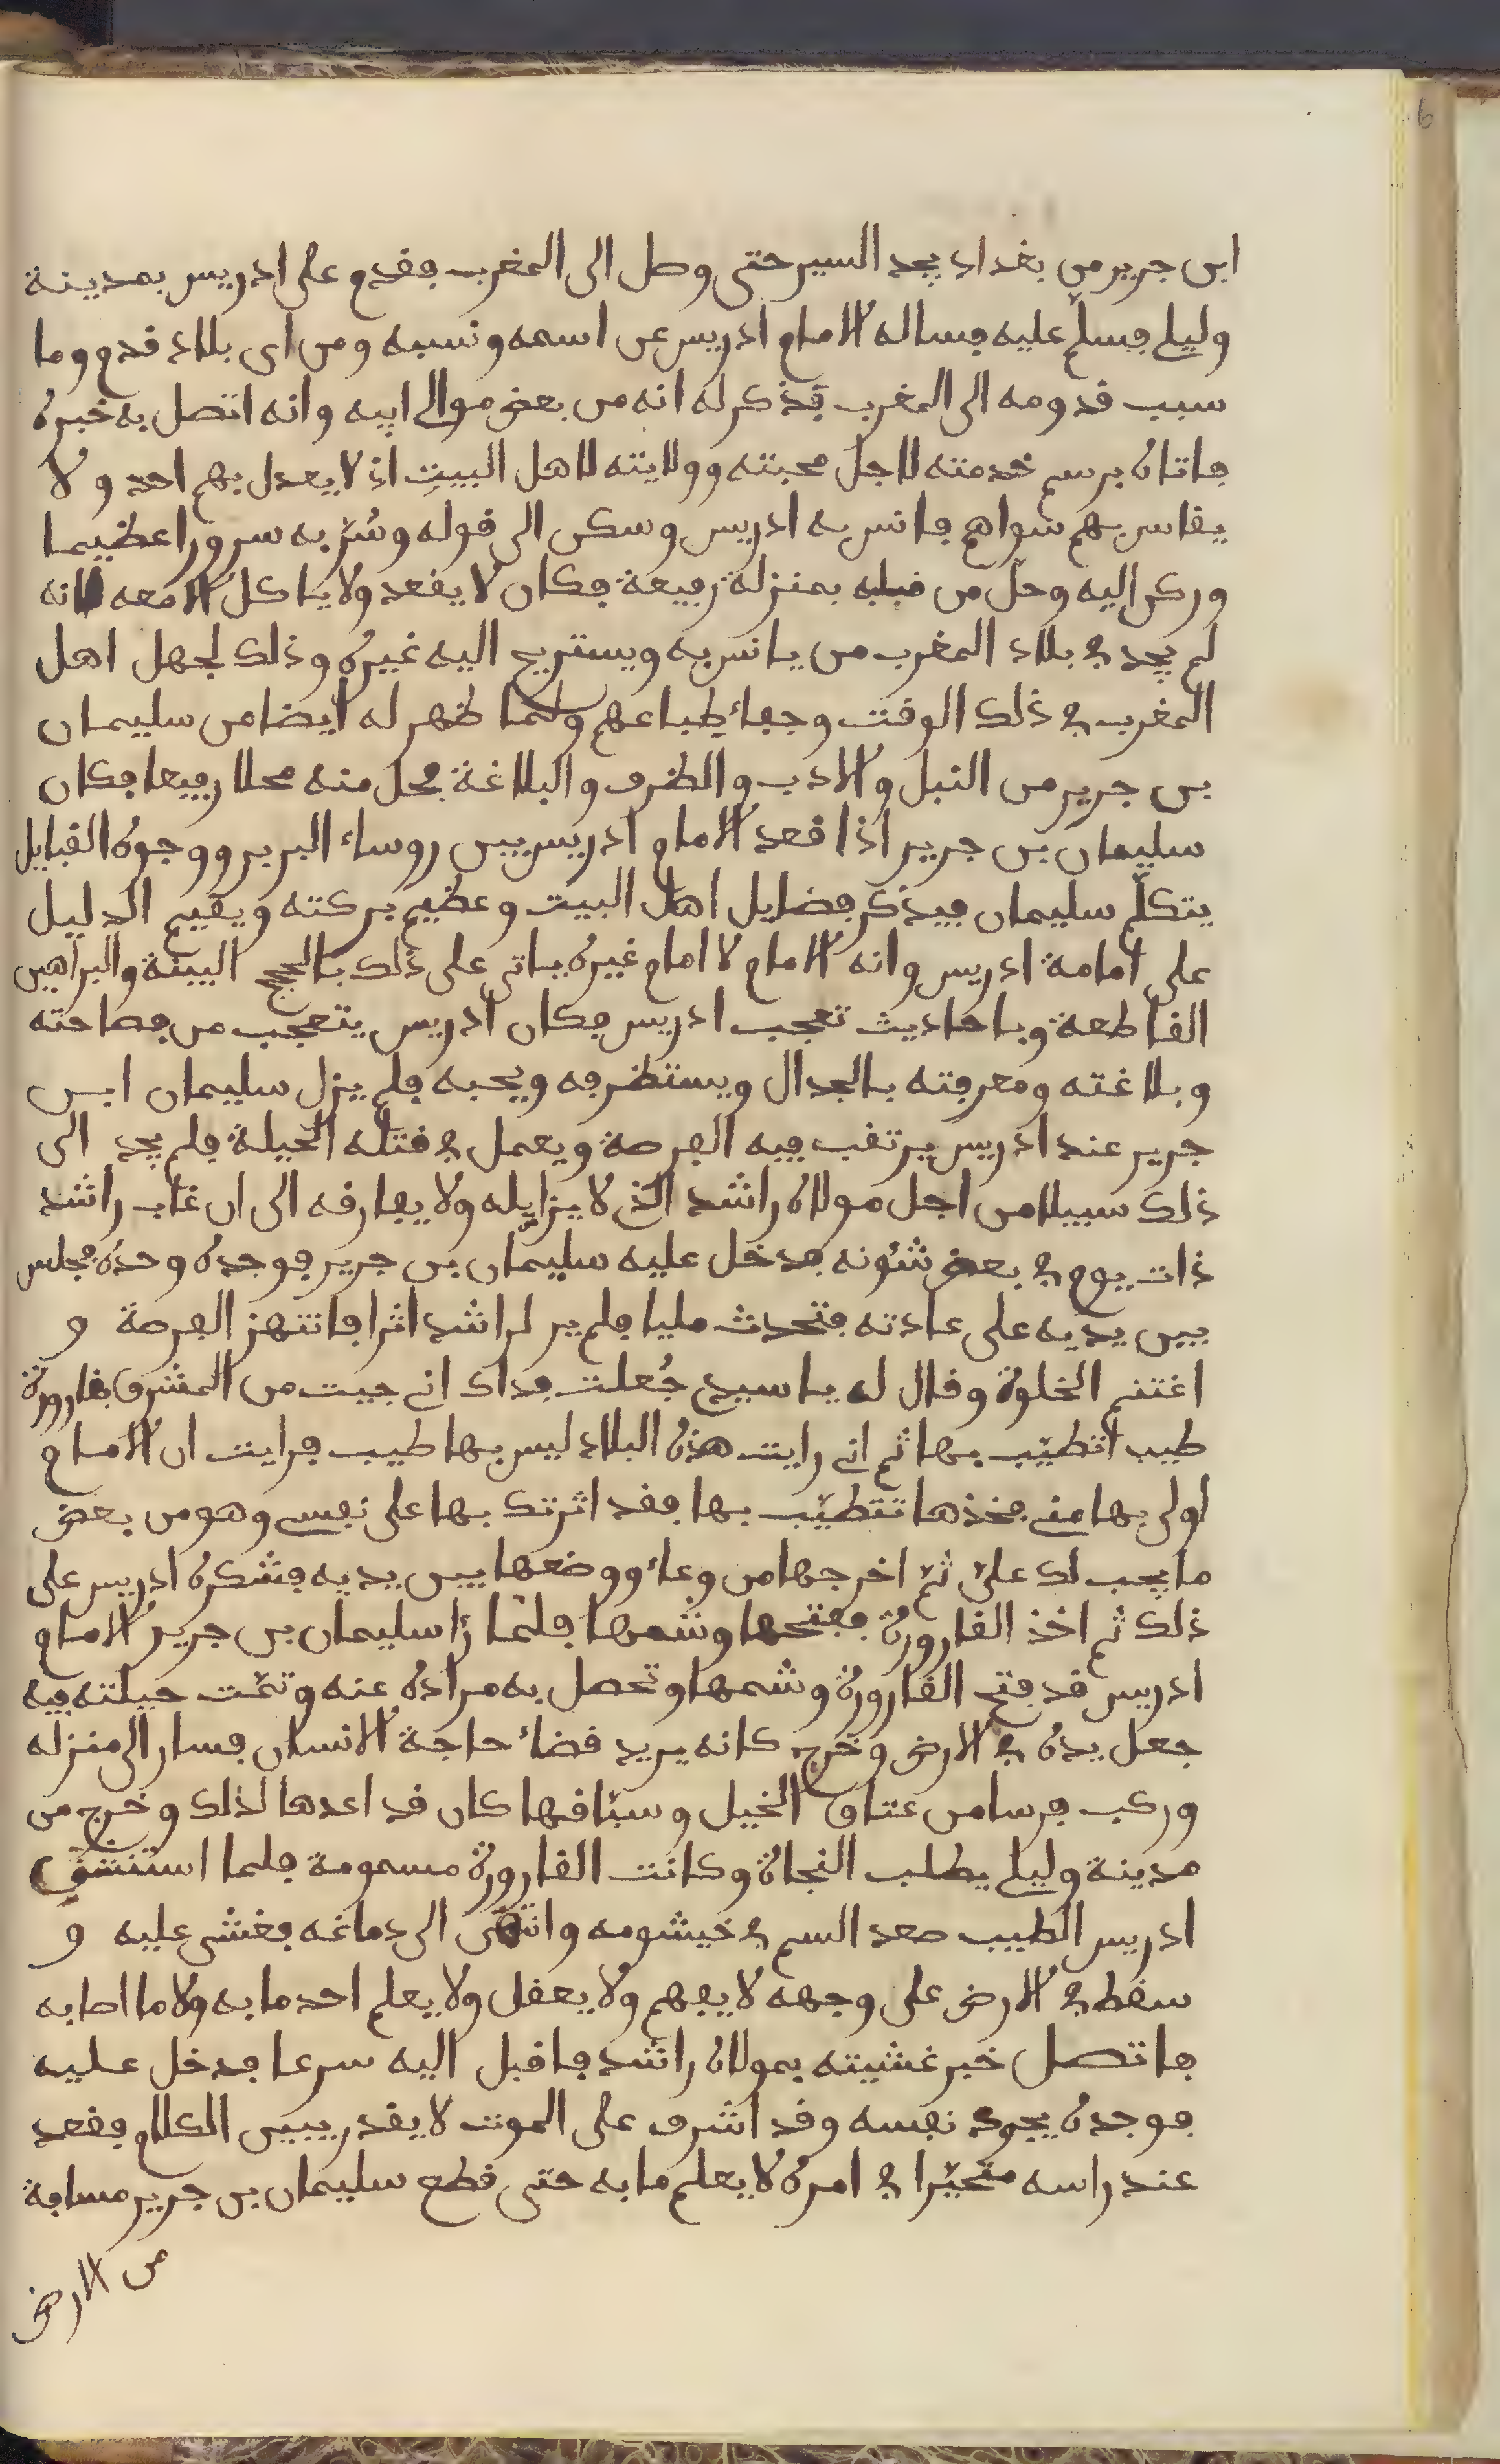 6
ابن جرير من بغداد يجد السير حتى وصل الى المغرب فقدم على ادريس بمدينة
وليلي فسلّم عليه فساله الامام ادريس عن اسمه ونسبه ومن اى بلاد قدم وما
سبب قدومه الى المغرب فذكر له انه من بعض موالي ابيه وانه اتصل به خبره
فاتاه برسم خدمته لاجل محبته وولايته لاهل البيت اذ لا يعدل بهم احد ولا
يقاس بهم سواهم فانس به ادريس وسكن الى قوله وسُرّ به سرورا عظيما
وركن اليه وحلّ من قبله بمنزلة رفيعة فكان لا يقعد ولا ياكل الا معه لانه
لم يجد في بلاد المغرب من يانس به ويستريح اليه غيره وذلك لجهل اهل
المغرب في ذلك الوقت وجفاء طباعهم ولما ظهر له ايضا من سليمان
بن جرير من النبل والادب والظرف والبلاغة فحل منه محلا رفيعا فكان
سليمان بن جرير اذا قعد الامام ادريس بين روساء البربر ووجوه القبايل
يتكلّم سليمان فيذكر فضايل اهل البيت وعظيم بركته ويقيم الدليل
على امامة ادريس وانه الامام لا امام غيره ياتى على ذلك بالحجج البينة والبراهين
القاطعة وباحاديث تعجب ادريس فكان ادريس يتعجب من فصاحته
وبلاغته ومعرفته بالجدال ويستظرفه ويحبه فلم يزل سليمان ابن
جرير عند ادريس يرتقب فيه الفرصة ويعمل في قتله الحيلة فلم يجد الى
ذلك سبيلا من اجل مولاه راشد الذي لا يزايله ولا يفارقه الى ان غاب راشد
ذات يوم في بعض شئونه فدخل عليه سليمان بن جرير فوجده وحده فجلس
بين يديه على عادته فتحدث مليا فلم ير لراشد اثرا فانتهز الفرصة و
اغتنم الخلوة وقال له يا سيدي جُعلت فداك اني جيت من المشرق بقارورة
طيب اتطيّب بها ثم اني رايت هذه البلاد ليس بها طيب فرايت ان الامام
اولى بها مني فخذها تتطيّب بها فقد اثرتك بها على نفسي وهو من بعض
ما يجب لك عليّ ثمّ اخرجها من وعاء ووضعها بين يديه فشكره ادريس على
ذلك ثم اخذ القارورة ففتحها وشمها فلمّا رٱ سليمان بن جرير الامام
ادريس قد فتح القارورة وشمها وتحصل به مراده عنه وتمّت حيلته فيه
جعل يده في الارض وخرج كانه يريد قضاء حاجة الانسان فسار الى منزله
وركب فرسا من عتاق الخيل وسبّاقها كان قد اعدها لذلك وخرج من
مدينة وليلي يطلب النجاة وكانت القارورة مسمومة فلما استنشق
ادريس الطيب صعد السم في خيشومه وانتهى الى دماغه فغشى عليه و
سقط في الارض على وجهه لا يفهم ولا يعقل ولا يعلم احد ما به ولا ما اصابه
فاتصل خبر غشيته بمولاه راشد فاقبل اليه سرعا فدخل عليه
فوجده يجود نفسه وقد اشرف على الموت لا يقدر يبين الكلام فقعد
عند راسه متحيّرا في امره لا يعلم ما به حتى قطع سليمان بن جرير مسافة
من الارض